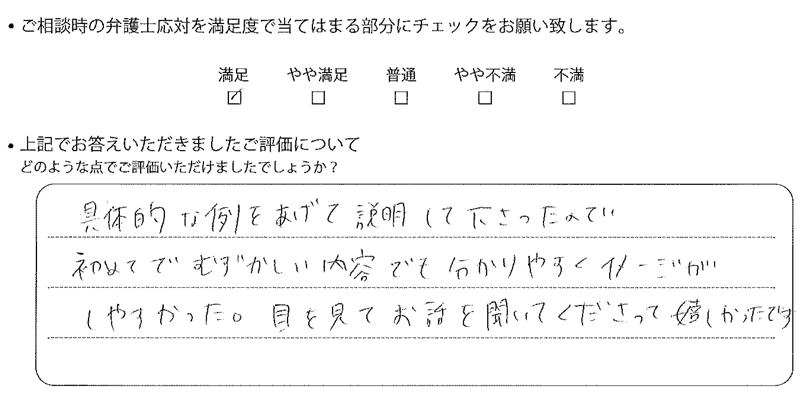 ・ご相談時の弁護士応対を満足度で当てはまる部分にチェックをお願い致します。
満足 やや満足 普通 やや不満 不満
・上記でお答えいただきましたご評価について
どのような点でご評価いただけましたでしょうか？
具体的な例をあげて説明して下さったので
初めてでむずかしい内容でも分かりやすくイメージが
しやすかった。目を見てお話を聞いてくださって嬉しかったです